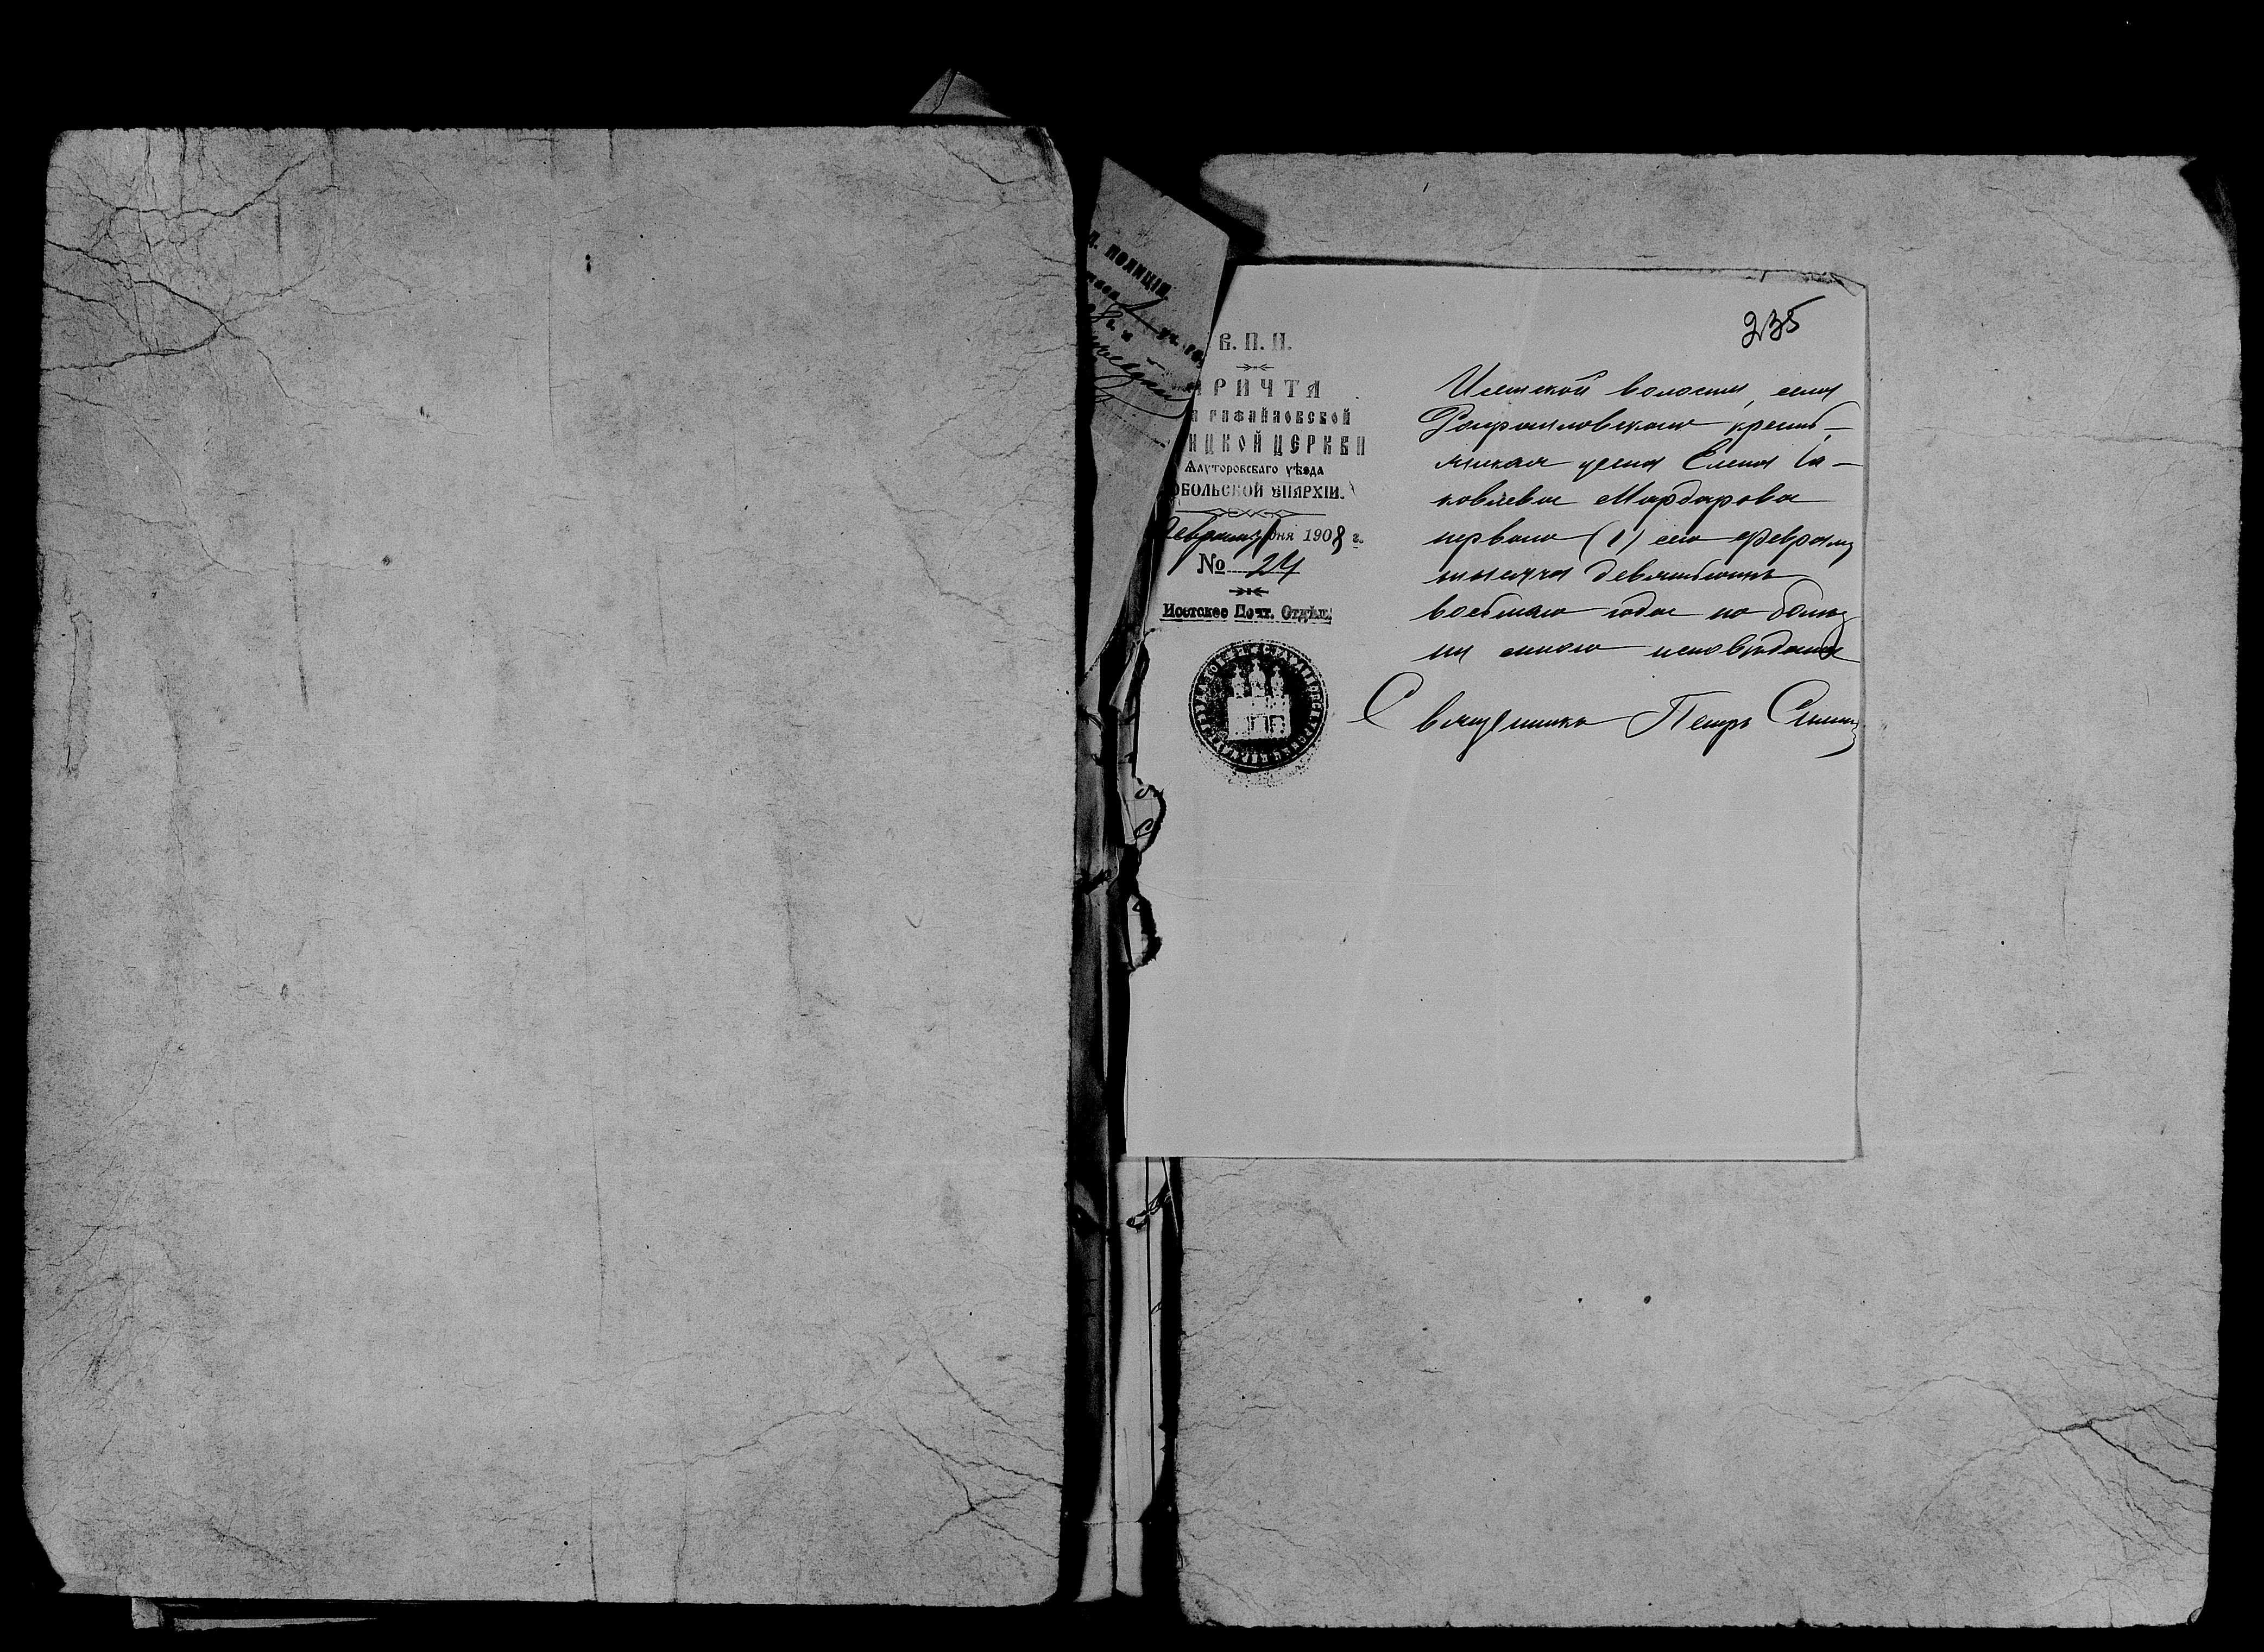 235
В. П. И.
ПРИЧТА
РАФАЙЛОВСКОЙ
ИЦКОЙ ЦЕРКВИ
Ялуторовскаго уѣзда
ОБОЛЬСКОЙ ЕПАРХІИ.
Февраля 1 дня 1908 г.
№ 24
Исетское Почт. Отдѣл.
Исетской волости, села
Рафаиловскаго кресть-
янская Елена Іа-
ковлева Мардарова
перваго (1) сего февраля
тысяча девятьсотъ
восьмаго года по болѣз
ни мною исповѣдана
Священникъ Петръ
полиціи.